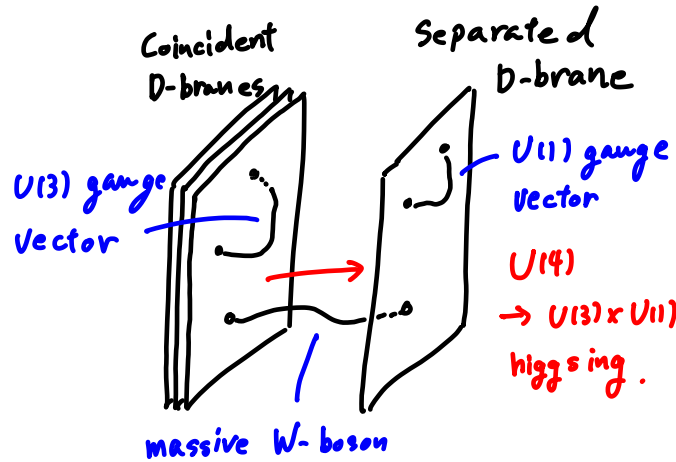 Coincident
D-branes
Separated
D-brane
U(3) gauge
vector
U(1) gauge
vector
U(4)
→ U(3) x U(1)
higgsing.
massive W-boson